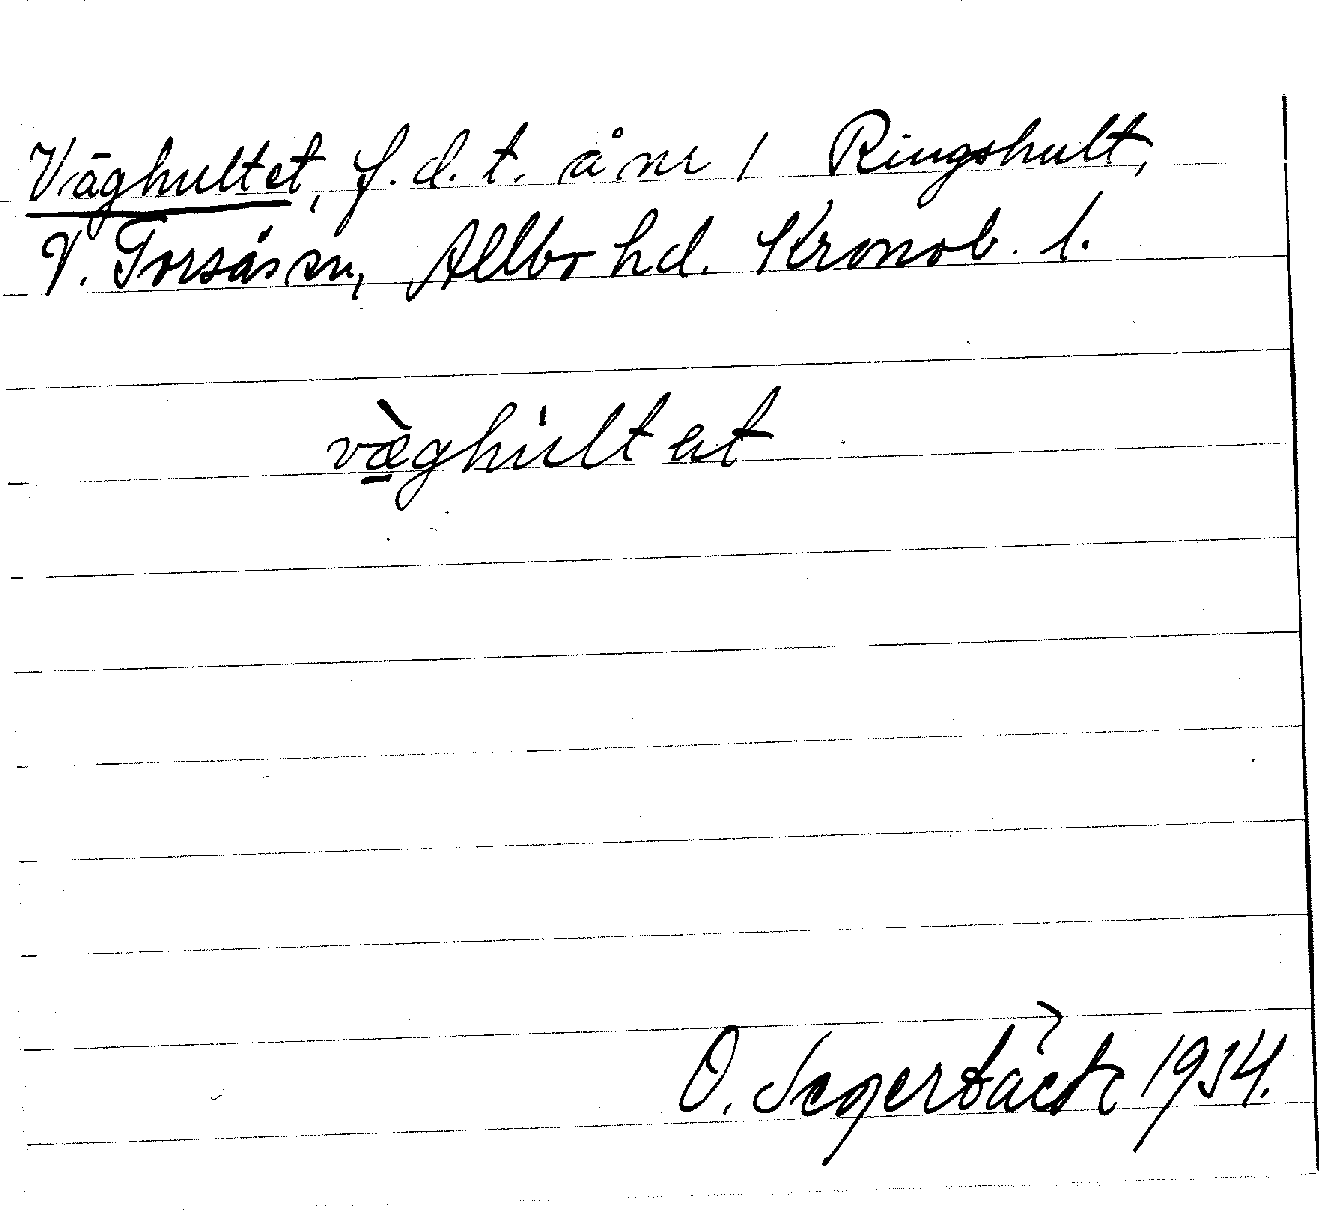 Väghultet, f.d.t. å nr 1 Ringshult,
V. Torsås sn, Allbo hd. Kronob. l.
væ̀ghùltet
O. Segerbäck 1934.